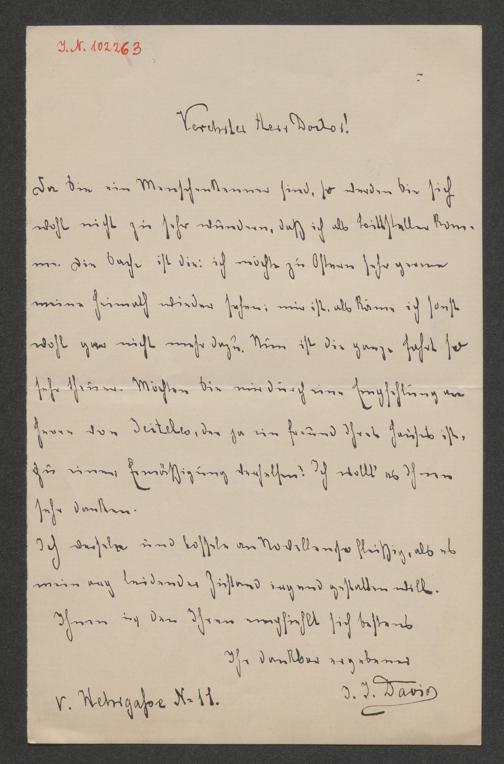 I.N. 102263
Verehrter Herr Doctor!
Da Sie ein Menschenkenner sind, so werden Sie sich
wohl nicht zu sehr wundern, daß ich als Bittsteller kom-
me. Die Sache ist die: ich möchte zu Ostern sehr gerne
meine Heimath wieder sehen; mir ist, als käme ich sonst
wohl gar nicht mehr dazu. Nun ist die ganze Fahrt so
sehr theuer. Möchten Sie mir durch eine Empfehlung an
Herrn von Teiteles, der ja ein Freund Ihres Hauses ist,
zu einer Ermäßigung verhelfen? Ich wollt' es Ihnen
sehr danken.
Ich und bossele an Novellen so fleißig, als es
mein arg leidender Zustand irgend gestatten will.
Ihnen und den Ihren empfiehlt sich bestens
Ihr dankbar ergebener
J. J. David
V. Wehrgasse No 11.